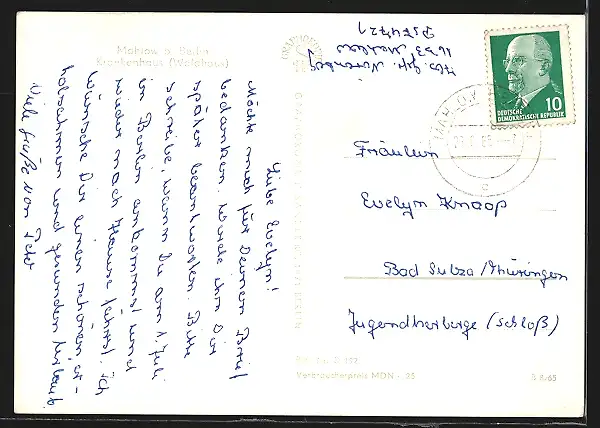 Mahlow b. Berlin
Krankenhaus (Waldhaus)
Liebe Evelyn!
Möchte mich für Deinen Brief
bedanken. Werde ihn Dir
später beantworten. Bitte
schreibe, wann Du am 1. Juli
in Berlin ankommst und
wieder nach Hause fährst. Ich
wünsche Dir einen schönen, er-
holsamen und gesunden Urlaub.
Viele Grüße von
1633 Mahlow
DEUTSCHE
DEMOKRATISCHE REPUBLIK
10
MAHLOW
Fräulein
Evelyn Knaop
Bad Sulza/Thüringen
Jugendherberge (Schloß)
Verbraucherpreis MDN -.25
B 8/65